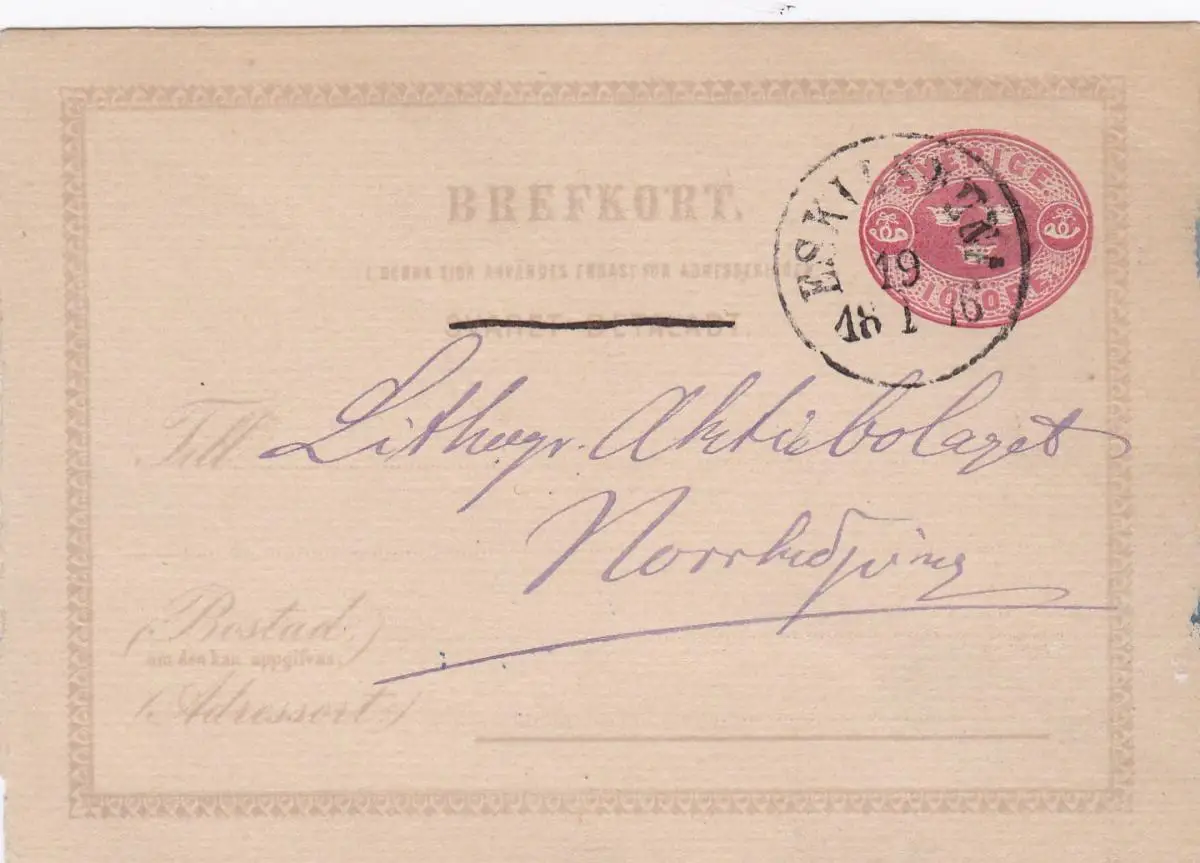 BREFKORT.
(DENNA SIDA ANVÄNDES ENDAST FÖR ADRESSERINGEN.)
SVERIGE
10 ÖRE
ESKILSTUNA
19
18 1 76
SVARET BETALADT.
Till Lithogr. Aktiebolaget
Norrköping
(Bostad,)
om den kan uppgifvas,
(Adressort.)